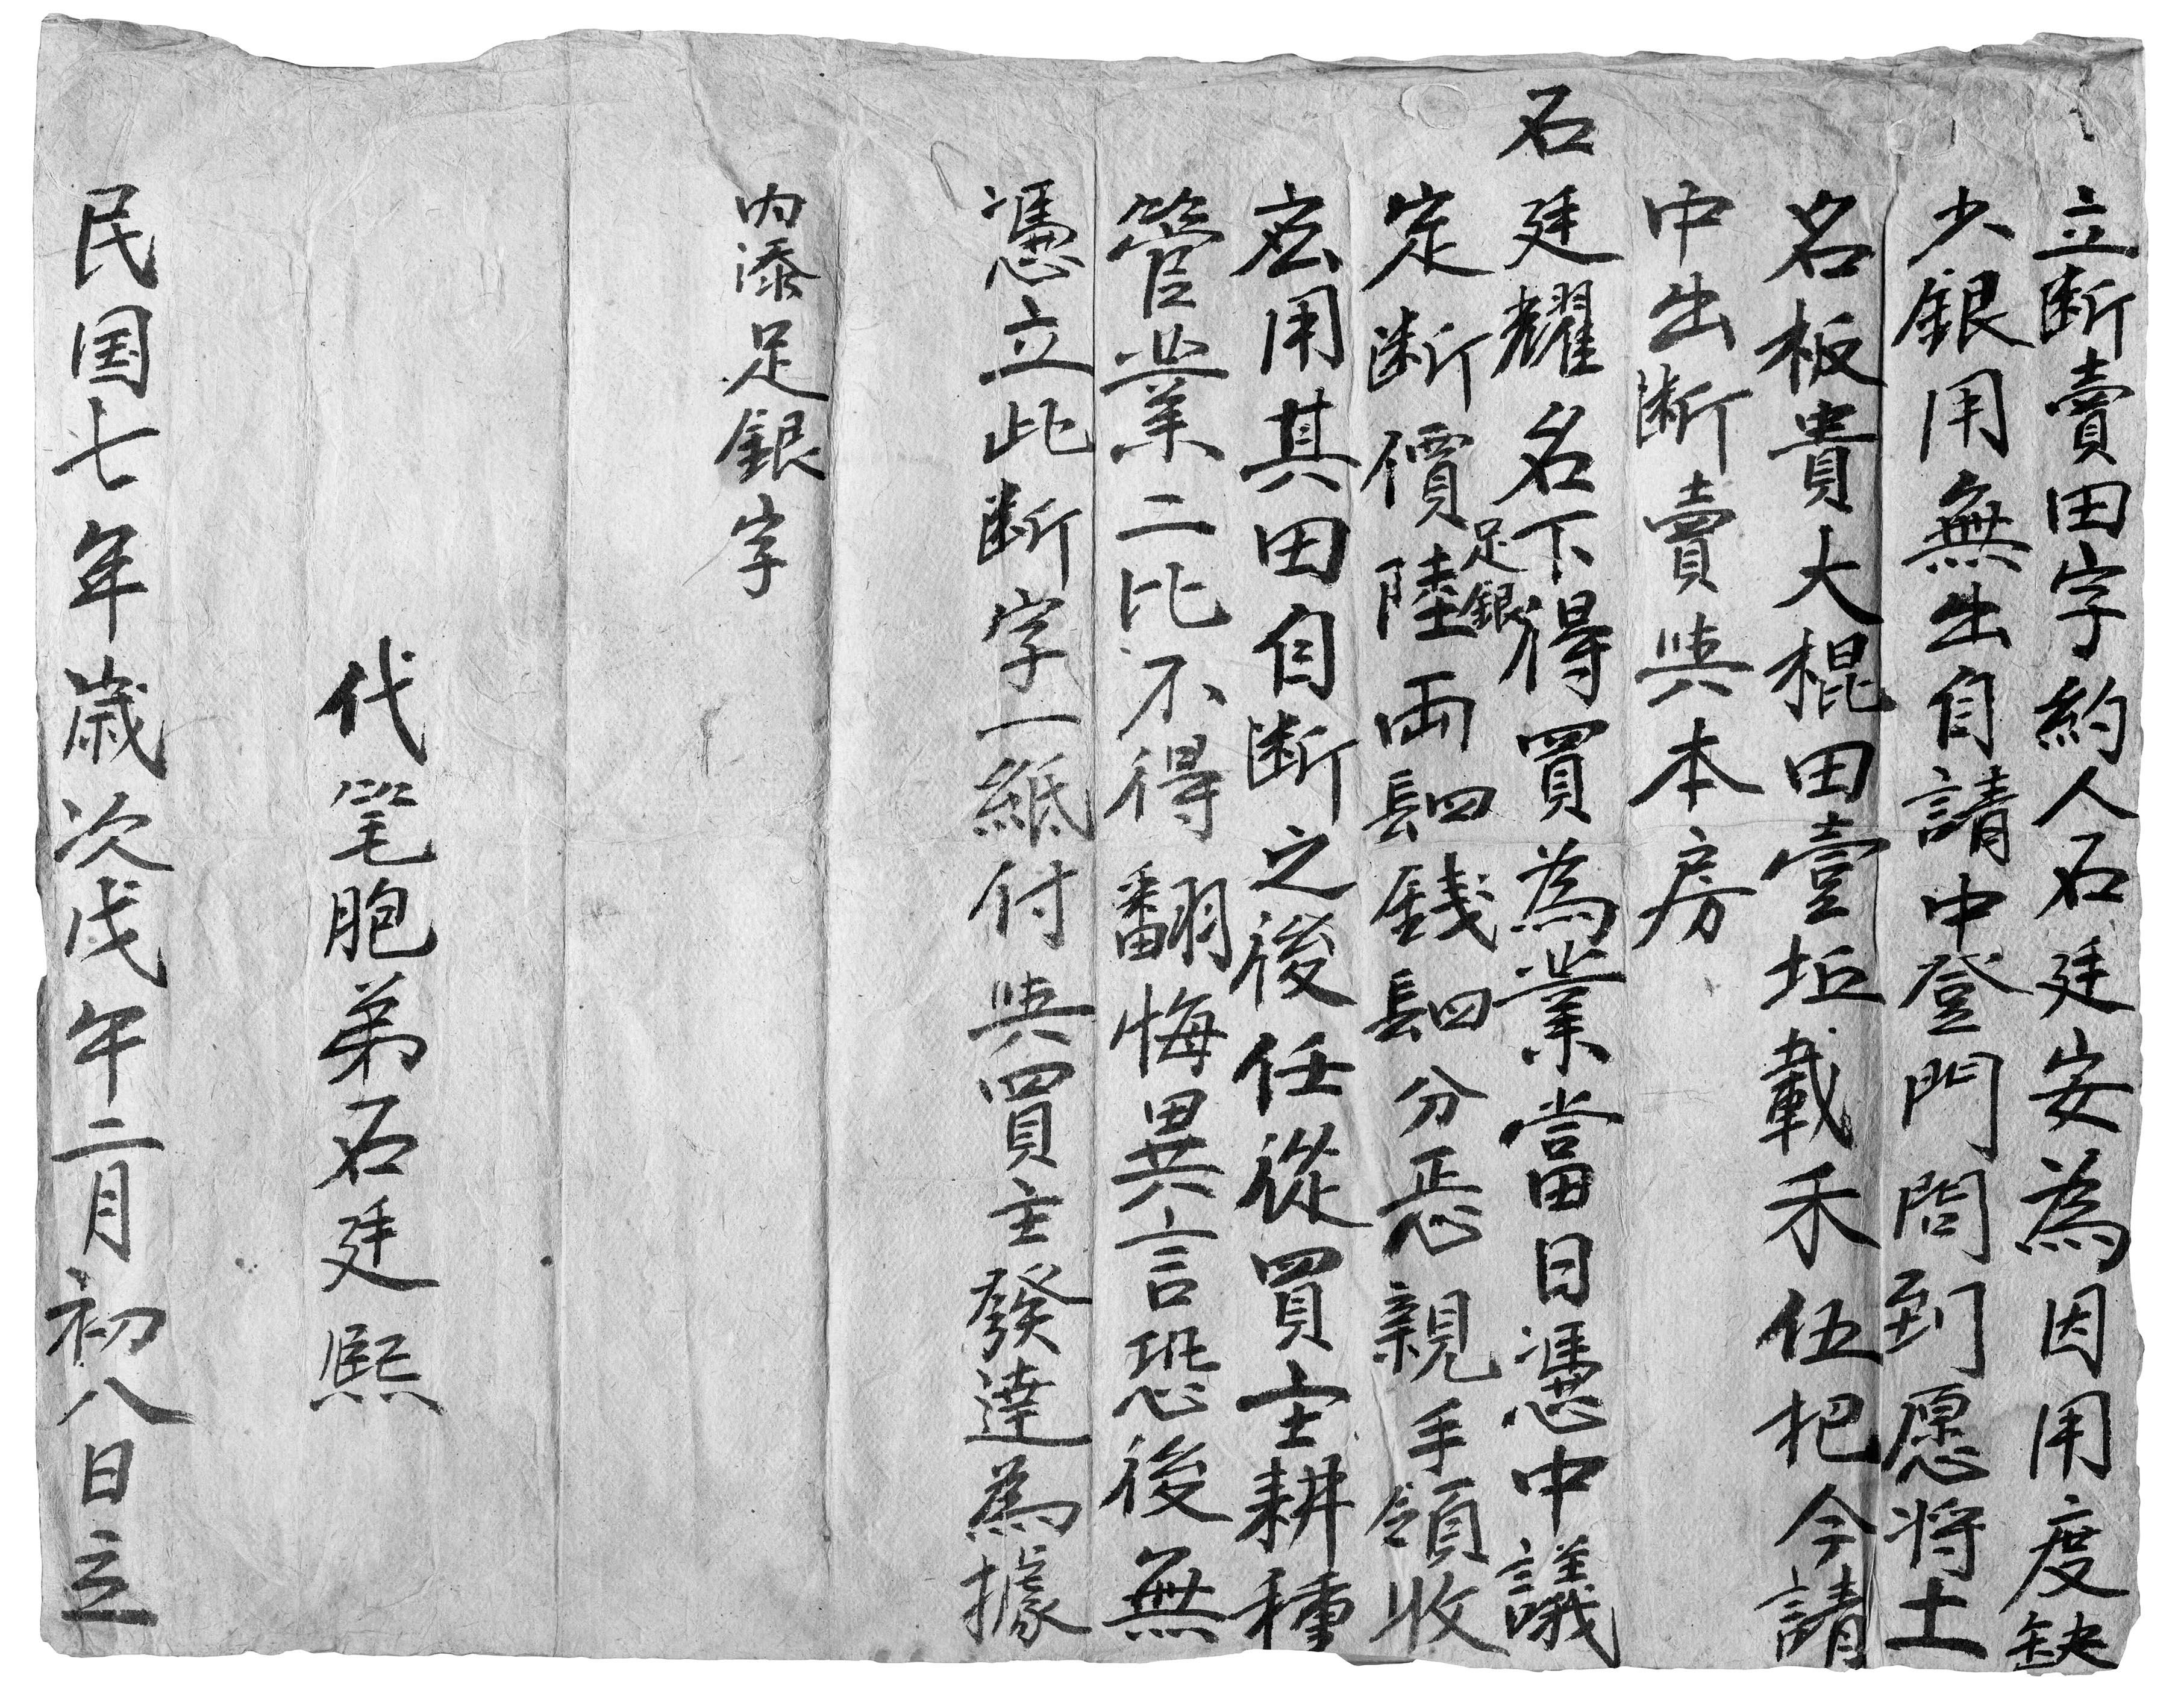 立断賣田字約人石廷安為因用度缺
少銀用無出自請中登門問到愿将土
名板貴大棍田壹坵載禾伍把今請
中出断賣與本房
石廷耀名下得買為業當日憑中議
定断價足銀陸両肆錢肆分悉親手領收
宏用其田自断之後任從買主耕種
管業二比不得翻悔異言恐後無
憑立此断字一紙付與買主發達為據
内添足銀字
代笔胞弟石廷熙
民国七年歲次戊午二月初八日立